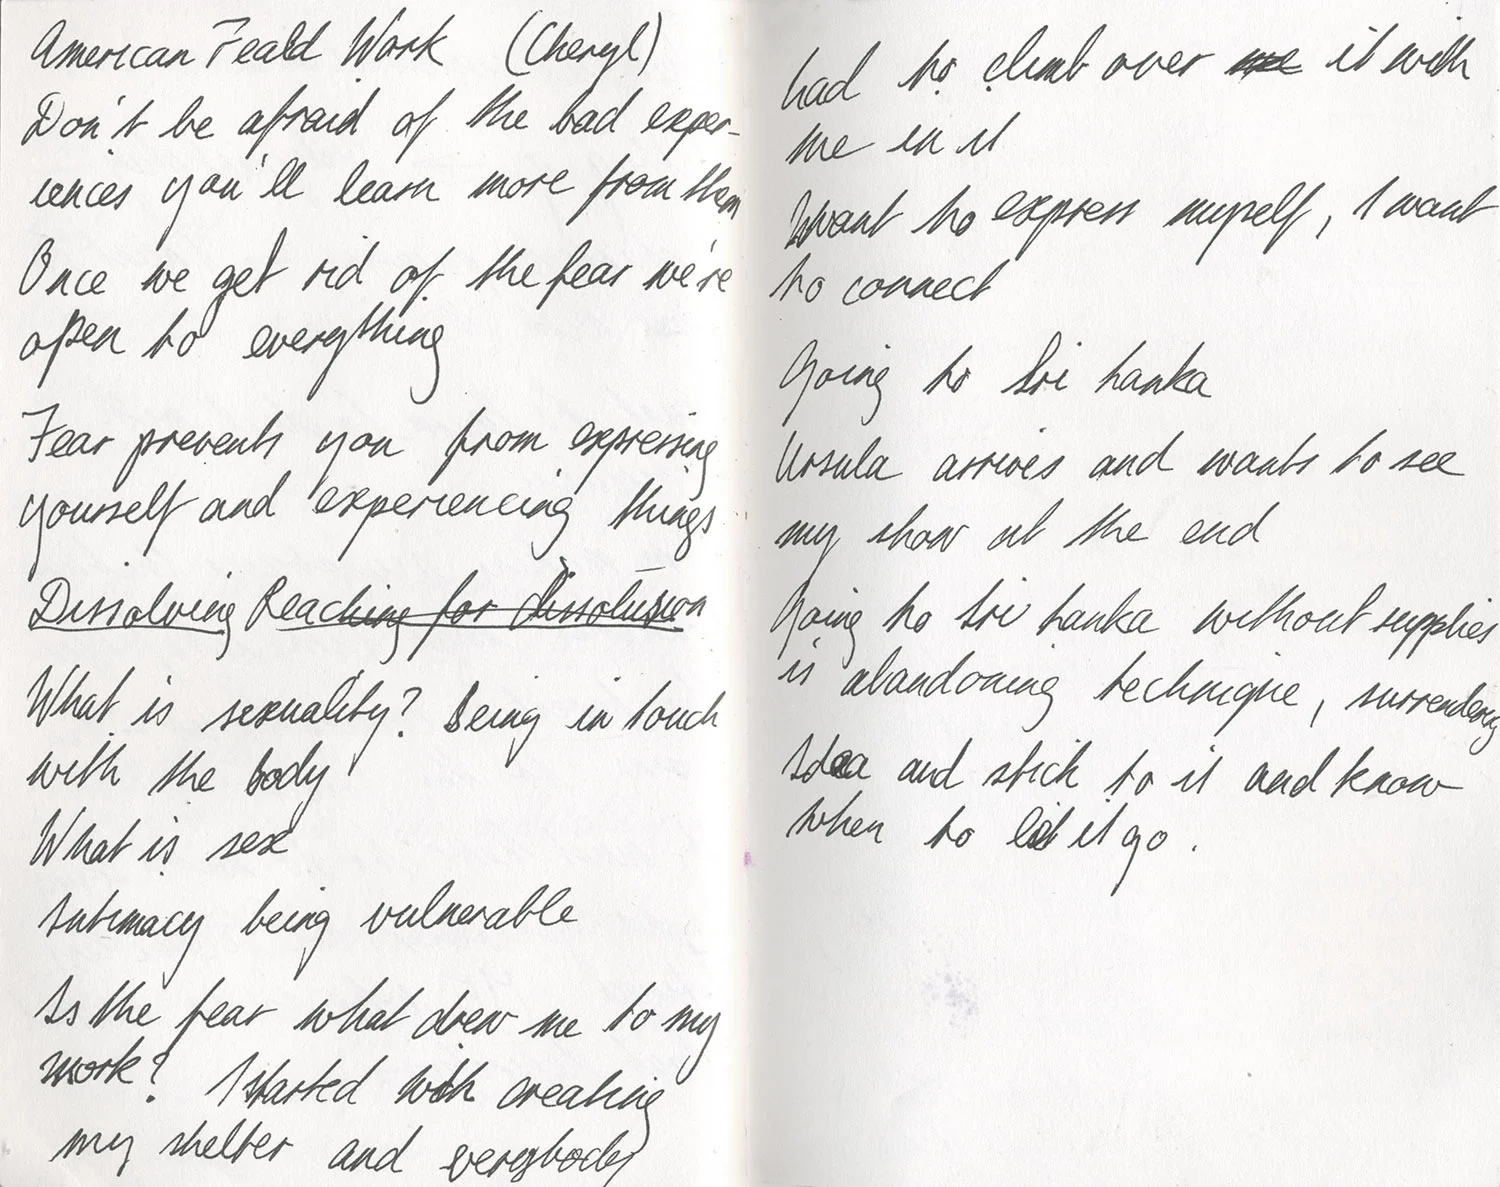 American Feald Work (Cheryl)
Don't be afraid of the bad exper-
iences you'll learn more from them
Once we get rid of the fear we're
open to everything
Fear prevents you from expressing
yourself and experiencing things
Dissolving Reaching for dissolusion
What is sexuality? Being in touch
with the body
What is sex
Intimacy being vulnerable
Is the fear what drew me to my
work? I started with creating
my shelter and everybody
had to climb over me it with
me in it
Iwant to express myself, I want
to connect
Going to Sri Lanka
Ursula arrives and wants to see
my show at the end
Going to Sri Lanka without supplies
is abandoning technique, surrendering
Idea and stick to it and know
when to let it go.